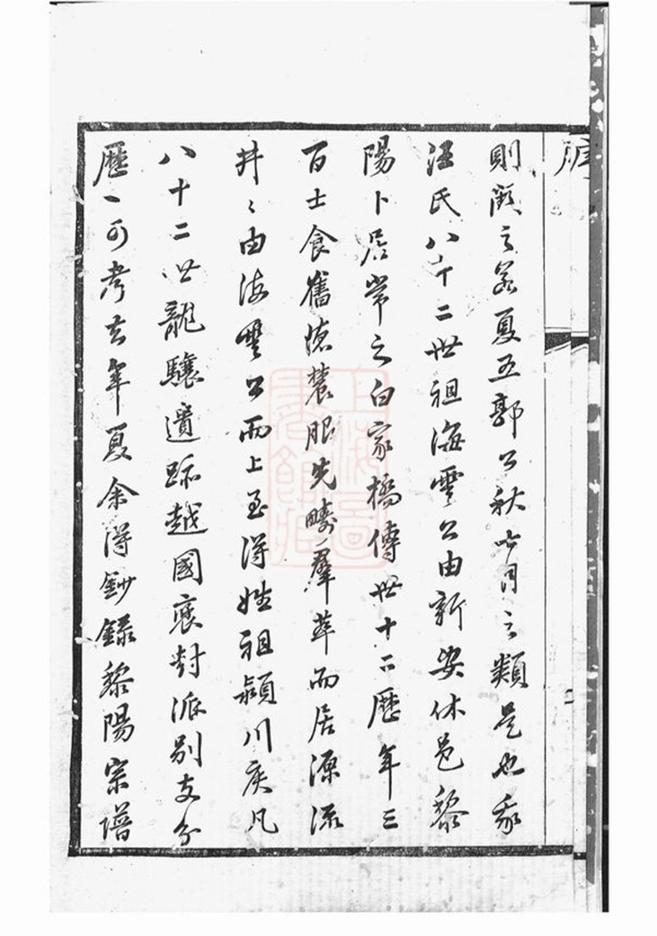 序
則闕之若夏五郭公秋七月之類是也我
汪氏八十二世祖海雲公由新安休邑黎
陽卜居常之白家橋傳世十二歷年三
百士食舊德農服先疇群萃而居源流
井々由海雲公而上至得姓祖潁川侯凡
八十二世龍驤遺跡越國褒封派別支分
歷一可考去年夏余得鈔錄黎陽宗譜
上海圖書館藏